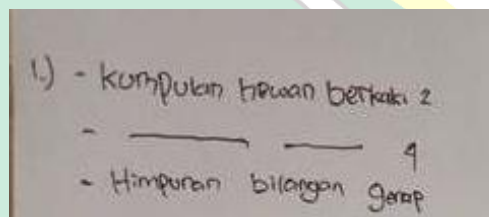 1.) - Kumpulan hewan berkaki 2
- ——— ——— 4
- Himpunan bilangan genap